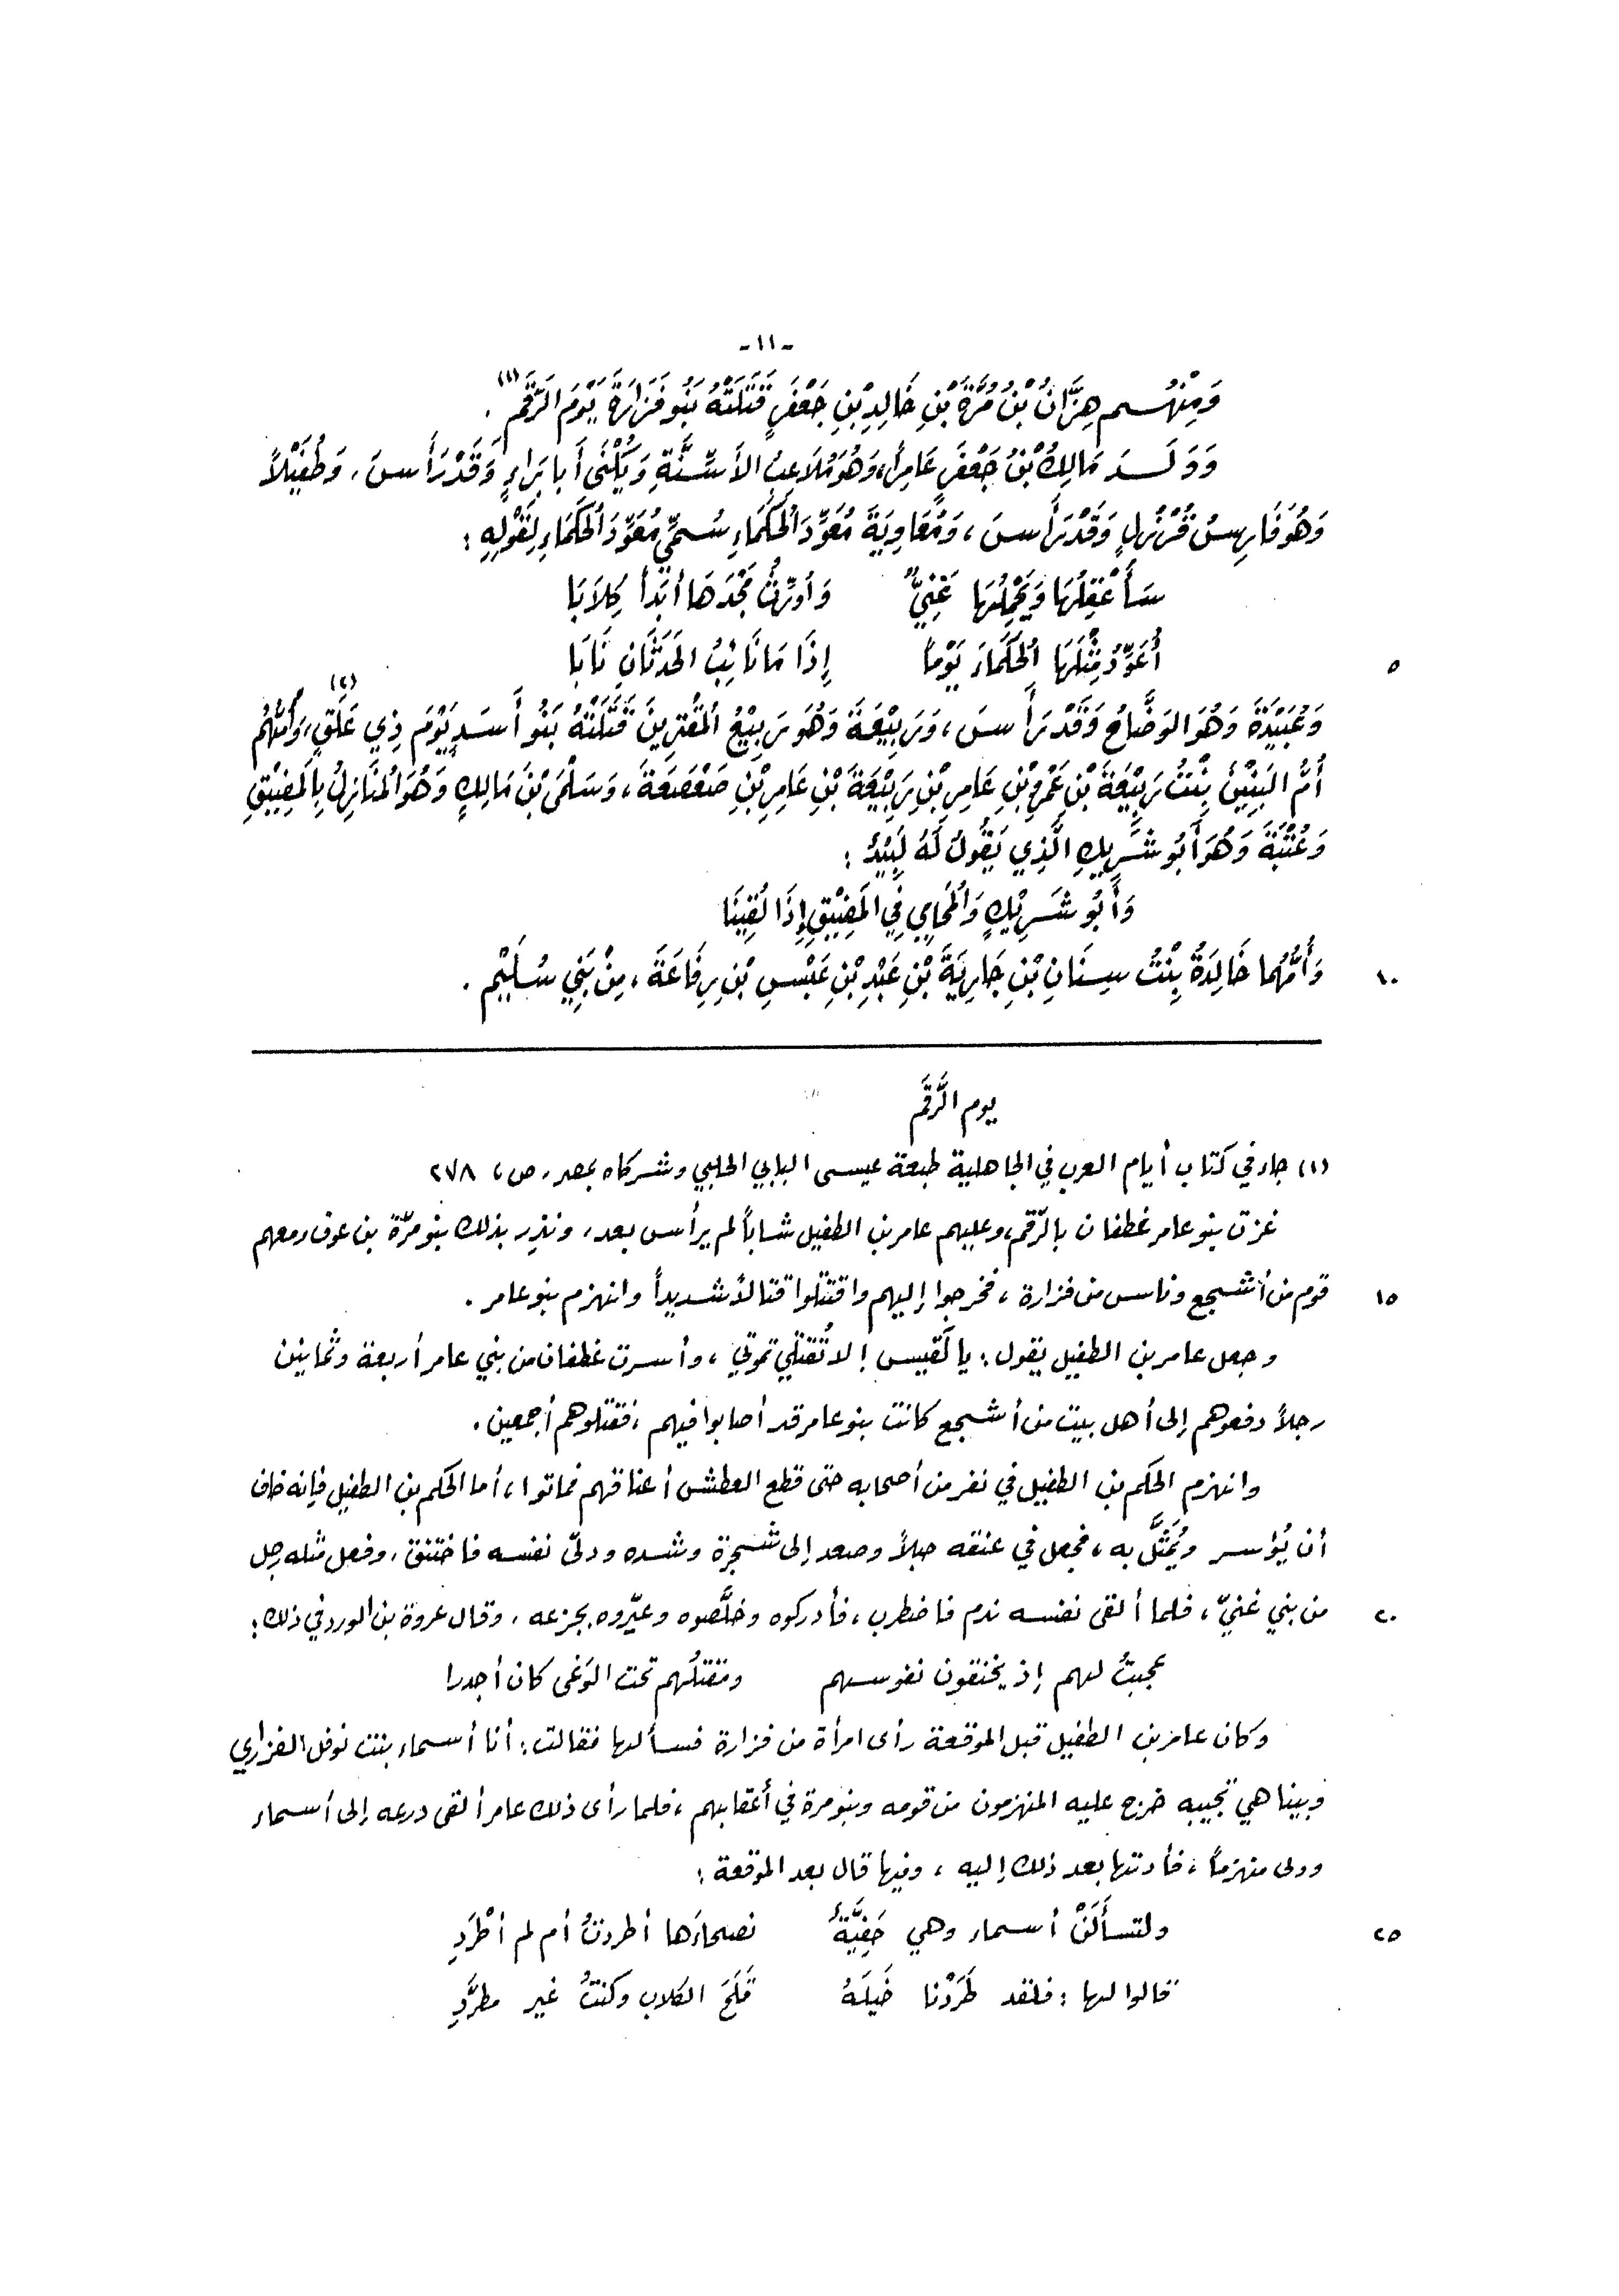 -١١-
وَمِنْهُم هِزَّانُ بْنُ مُرَّةَ بْنِ خَالِدِ بْنِ جَعْفَرٍ قَتَلَتْهُ بَنُو فَزَارَةَ يَوْمَ الرَّقَمِ (١).
وَوَلَدَ مَالِكُ بْنُ جَعْفَرٍ عَامِراً، وَهُوَ مُلَاعِبُ الأَسِنَّةِ وَيُكْنَى أَبا بَرَاءٍ وَقَدْ رَأَسَ، وَطُفَيْلاً
وَهُوَ فَارِسُ قُرْزُلٍ وَقَدْ رَأَسَ، وَمُعَاوِيَةَ مُعَوِّدَ الْحُكَمَاءِ سُمِّيَ مُعَوِّدَ الْحُكَمَاءِ لِقَوْلِهِ:
سَأَعْقِلُهَا وَيَحْمِلُهَا غَنِيٌّ وَأُورِثُ مَجْدَهَا أَبَداً كِلَابَا
٥ أُعَوِّدُ مِثْلَهَا الْحُكَمَاءَ يَوْماً إِذَا مَا نَائِبُ الحَدَثَانِ نَابَا
وَعُبَيْدَةَ وَهُوَ الوَضَّاحُ وَقَدْ رَأَسَ، وَرَبِيْعَةَ وَهُوَ رَبِيْعُ الْمُقْتِرِينَ قَتَلَتْهُ بَنُو أَسَدٍ يَوْمَ ذِي عَلَقٍ (٢)، وَأُمُّهُم
أُمُّ البَنِيْنَ بِنْتُ رَبِيْعَةَ بْنِ عَمْرِو بْنِ عَامِرِ بْنِ رَبِيْعَةَ بْنِ عَامِرِ بْنِ صَعْصَعَةَ، وَسَلْمَى بْنَ مَالِكٍ وَهُوَ الْمُنَازِلُ بِالْمَضِيْقِ
وَعُتْبَةَ وَهُوَ أَبُو شَرِيكٍ الَّذِي يَقُولُ لَهُ لَبِيْدٌ:
وَأَبُو شَرِيْكٍ وَالْمُحَامِي فِي المَضِيْقِ إِذَا لُقِينَا
١٠ وَأُمُّهُما خَالِدَةُ بِنْتُ سِنَانِ بْنِ جَارِيَةَ بْنِ عَبْدِ بْنِ عَبْسِ بْنِ رِفَاعَةَ، مِنْ بَنِي سُلَيْمٍ.
يوم الرَّقَم
(١) جاء في كتاب أيام العرب في الجاهلية طبعة عيسى البابي الحلبي وشركاه بمصر، ص، ٢٧٨
غزت بنو عامر غطفان بالرّقم، وعليهم عامر بن الطفيل شاباً لم يرأس بعد، ونذر بذلك بنو مرّة بن عوف ومعهم
١٥ قوم من أشجع وناس من فزارة، فخرجوا إليهم واقتتلوا قتالاً شديداً وانهزم بنو عامر.
وجعل عامر بن الطفيل يقول: يا لَقيس! لا تُقْتَلي تموتي، وأسرت غطفان من بني عامر أربعة وثمانين
رجلاً دفعوهم إلى أهل بيت من أشجع كانت بنو عامر قد أصابوا فيهم، فقتلوهم أجمعين.
وانهزم الحكم بن الطفيل في نفر من أصحابه حتى قطع العطش أعناقهم فماتوا، أما الحكم بن الطفيل فإنه خاف
أن يُؤسر ويُمَثَّل به، فجعل في عنقه حبلاً وصعد إلى شجرة وشده ودلّى نفسه فاختنق، وفعل مثله رجل
٢٠ من بني غنيّ، فلما ألقى نفسه ندم فاضطرب، فأدركوه وخلَّصوه وعيّروه بجزعه، وقال عروة بن الورد في ذلك:
عجبتُ لهم إذ يخنقون نفوسهم ومقتلُهم تحت الوَغى كان أجدرا
وكان عامر بن الطفيل قبل الموقعة رأى امرأة من فزارة فسألها فقالت: أنا أسماء بنت نوفل الفزاري
وبينا هي تجيبه خرج عليه المنهزمون من قومه وبنو مرة في أعقابهم، فلما رأى ذلك عامر ألقى درعه إلى أسماء
وولى منهزماً، فأدتها بعد ذلك إليه، وفيها قال بعد الموقعة:
٢٥ ولتسأَلَنْ أسماء وهي حَفِيَّةٌ نصحاءَها أطردتُ أم لم أطْرَدِ
قالوا لها: فلقد طَرَدْنا خَيلَهُ قَلَحَ الكلاب وكنتُ غير مطرَّدِ